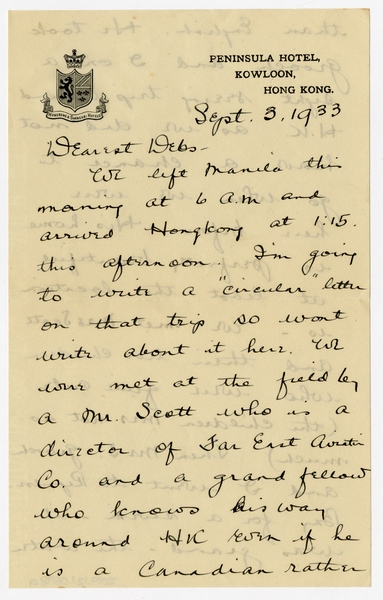 PENINSULA HOTEL,
KOWLOON,
HONG KONG.
Sept. 3, 1933
Dearest Debs-
We left Manila this
morning at 6 A.M and
arrived Hongkong at 1:15.
this afternoon. I'm going
to write a "circular" letter
on that trip so wont
write about it here. We
were met at the field by
a Mr. Scott who is a
director of Far East Aviation
Co. and a grand fellow
who knows his way
around HK even if he
is a Canadian rather